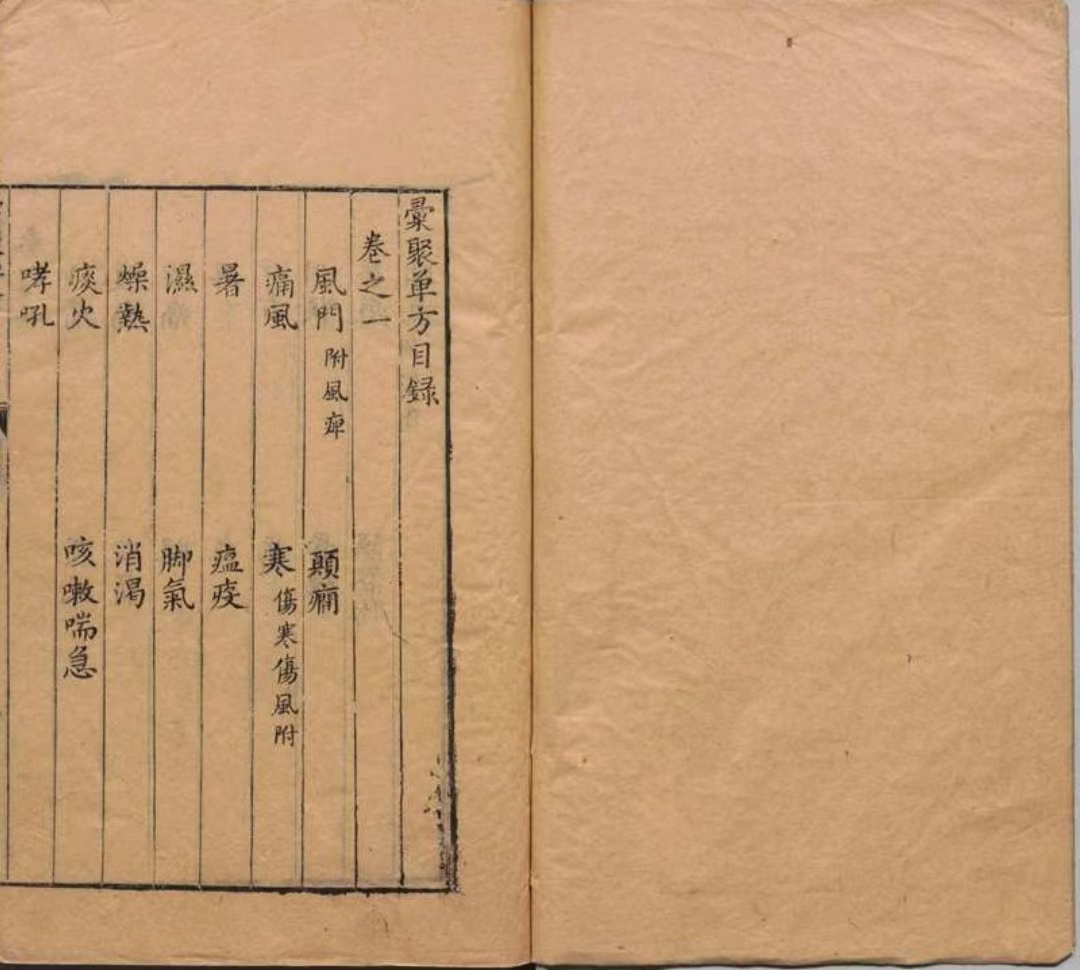 彚聚单方目録
卷之一
風門 附風痺 顛癇
痛風 寒 傷寒傷風附
暑 瘟疫
濕 脚氣
燥熱 消渴
痰火 咳嗽喘急
哮吼